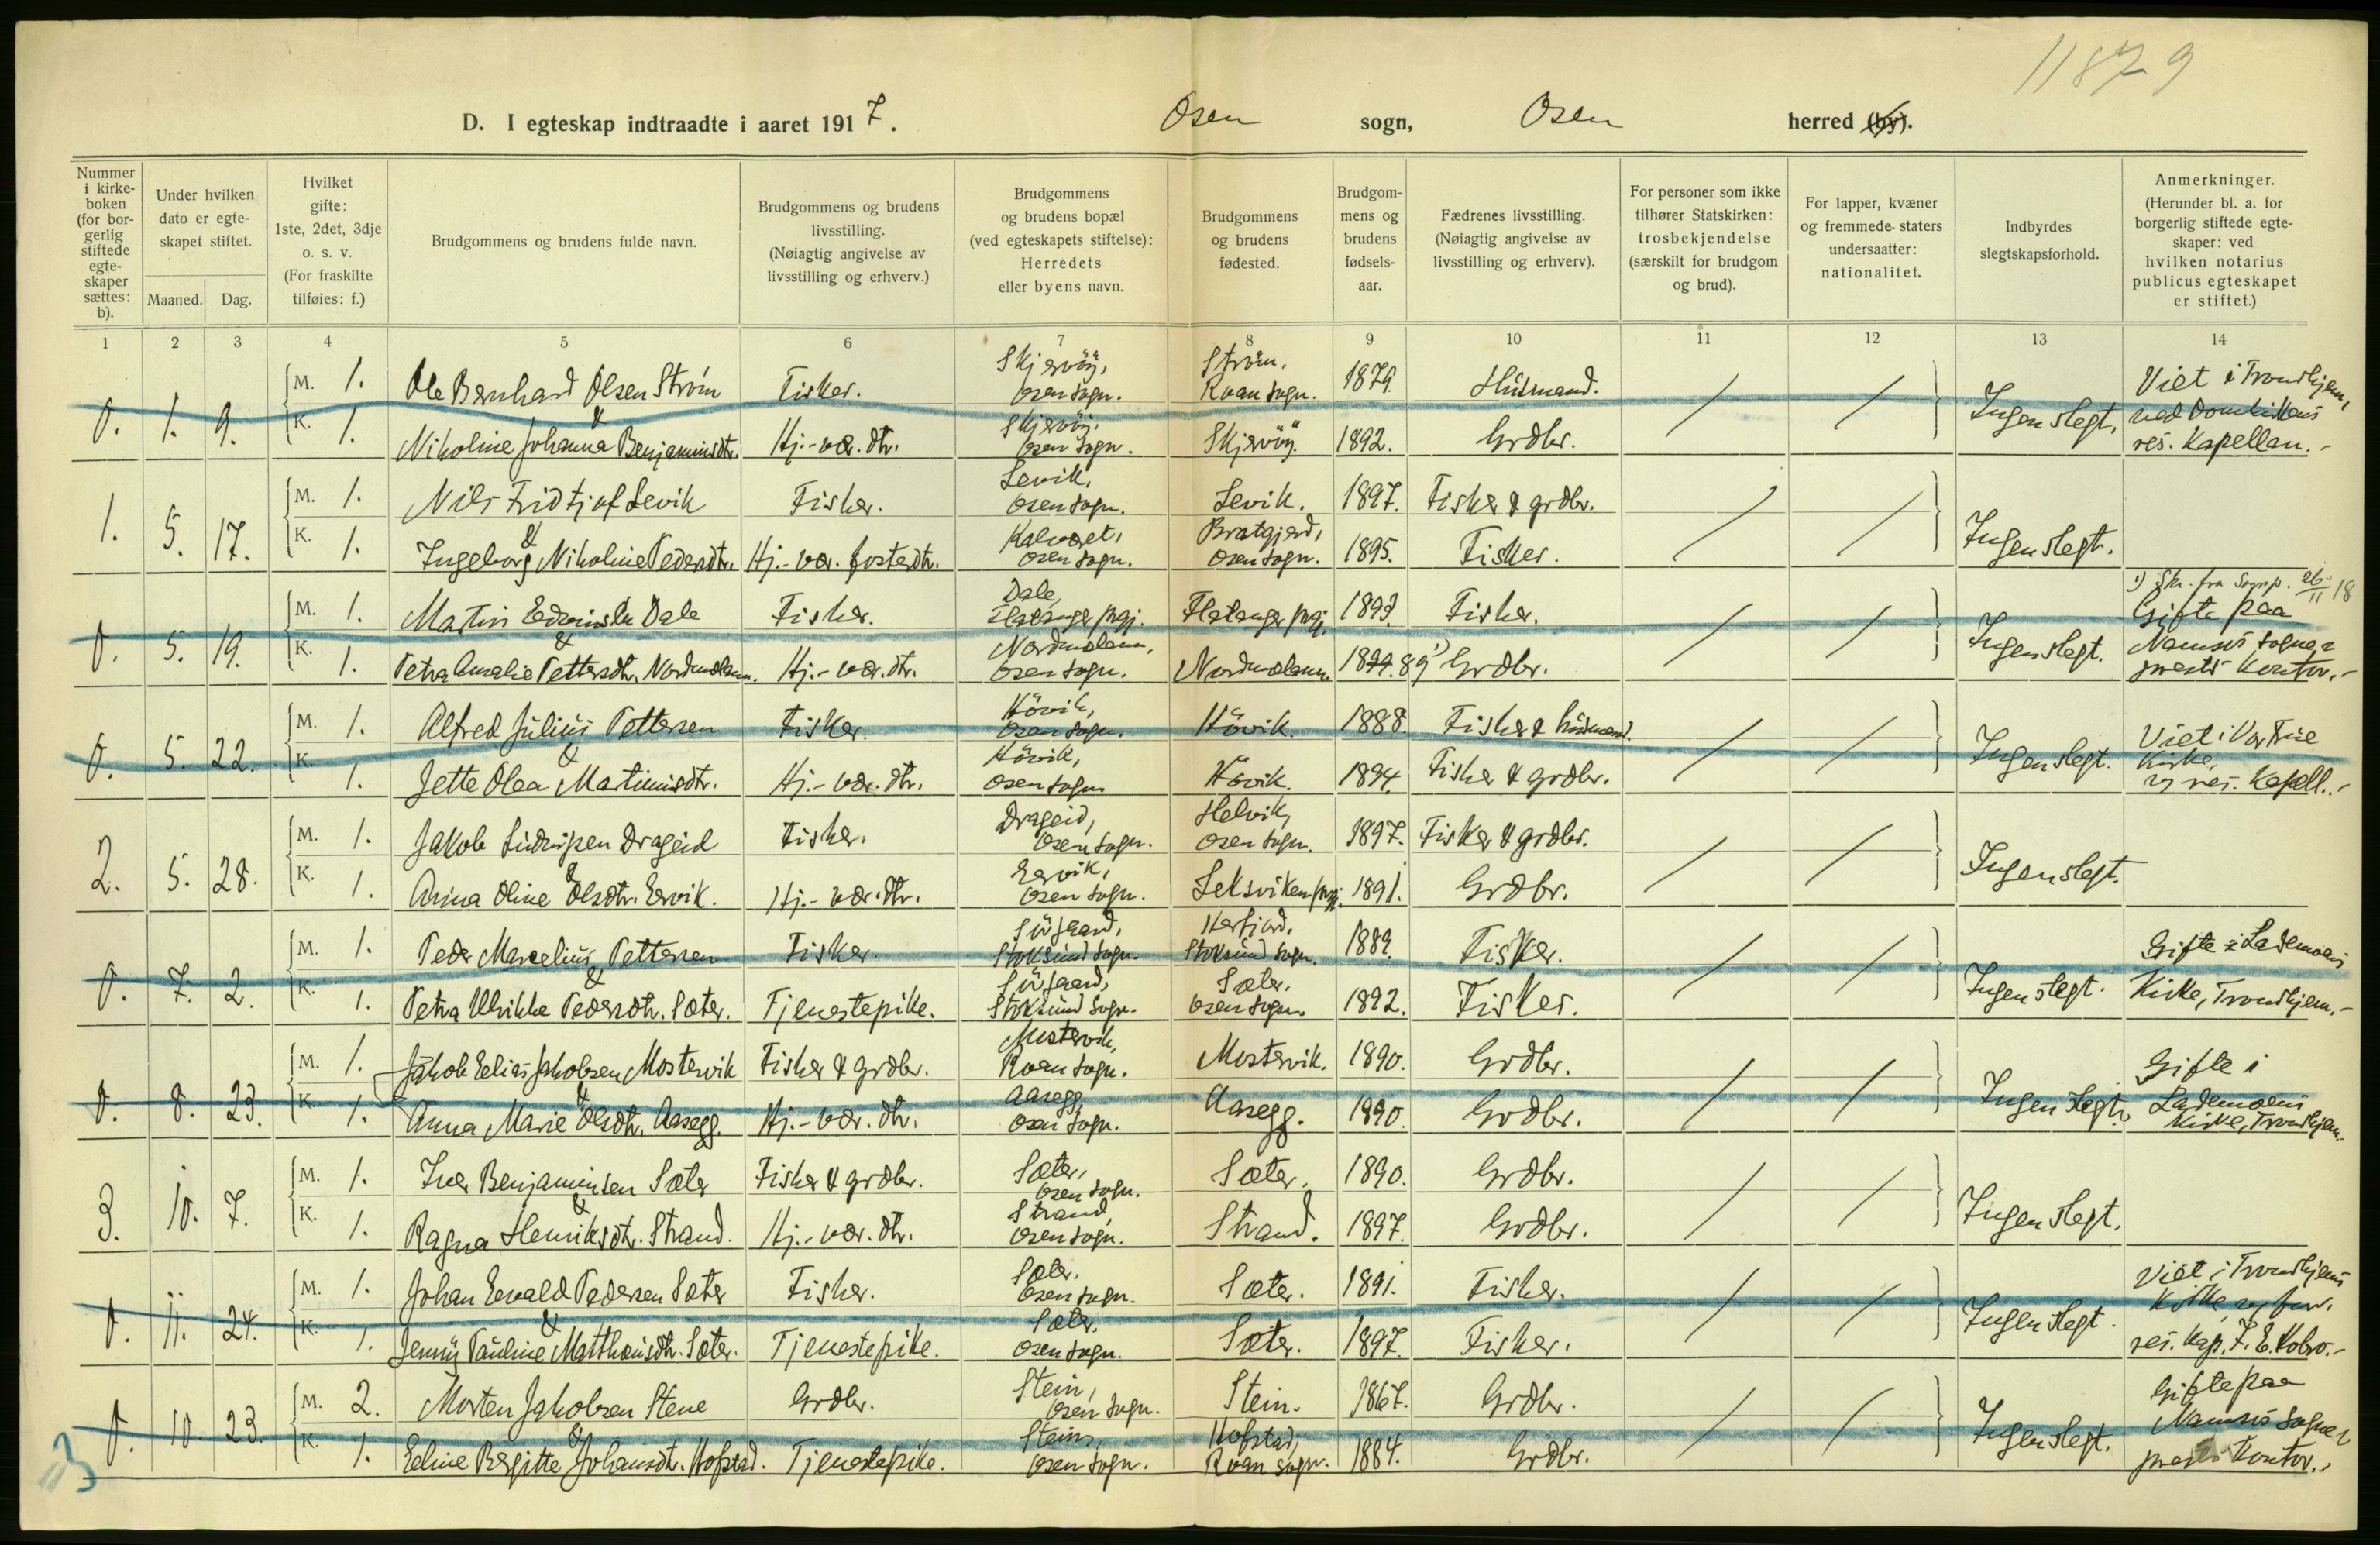 11879
D. I egteskap indtraadte i aaret 1917. Osen sogn, Osen herred (by).
Nummer i kirke- boken (for bor- gerlig stiftede egte- skaper sættes: b).
Under hvilken dato er egte- skapet stiftet.
Maaned. Dag.
Hvilket gifte: 1ste, 2det, 3dje o. s. v. (For fraskilte tilføies: f.)
Brudgommens og brudens fulde navn.
Brudgommens og brudens livsstilling. (Nøiagtig angivelse av livsstilling og erhverv.)
Brudgommens og brudens bopæl (ved egteskapets stiftelse): Herredets eller byens navn.
Brudgommens og brudens fødested.
Brudgom- mens og brudens fødsels- aar.
Fædrenes livsstilling. (Nøiagtig angivelse av livsstilling og erhverv).
For personer som ikke tilhører Statskirken: trosbekjendelse (særskilt for brudgom og brud).
For lapper, kvæner og fremmede staters undersaatter: nationalitet.
Indbyrdes slegtskapsforhold.
Anmerkninger. (Herunder bl. a. for borgerlig stiftede egte- skaper: ved hvilken notarius publicus egteskapet er stiftet.)
1 2 3 4 5 6 7 8 9 10 11 12 13 14
0. 1. 9.
M. 1. Ole Bernhard Olsen Strøm Fisker. Skjervöy, Osen sogn. Ström, Roan sogn. 1879. Husmand.
&
K. 1. Nikoline Johanna Benjaminsdtr. Hj.-vær. dtr. Skjervöy, Osen sogn. Skjervöy. 1892. Grdbr.
Ingen slegt.
Viet i Trondhjem, ved Domkirkens res. Kapellan.-
1. 5. 17.
M. 1. Nils Fridtjof Sevik Fisker. Sevik, Osen sogn. Sevik. 1897. Fisker & grdbr.
&
K. 1. Ingeborg Nikoline Pedersdtr. Hj.-vær. fosterdtr. Kalværet, Osen sogn. Bratgjerd, Osen sogn. 1895. Fisker.
Ingen slegt.
0. 5. 19.
M. 1. Martin Dale Fisker. Dale, Flatanger prgj. Flatanger prgj. 1893. Fisker.
&
K. 1. Petra Amalie Pettersdtr. Nordmelann. Hj.-vær. dtr. Nordmelann, Osen sogn. Nordmelann. 89 1) Grdbr.
Ingen slegt.
1) Skr. fra Sognep. 26/11 18
Gifte paa Namsos sogne- prests Kontor.-
0. 5. 22.
M. 1. Alfred Julius Pettersen Fisker. Hövik, Osen sogn. Hövik. 1888. Fisker & husmand.
&
K. 1. Jette Olea Martinusdtr. Hj.-vær. dtr. Hövik, Osen sogn Hövik. 1894. Fisker & grdbr.
Ingen slegt.
Viet i Vor Frue Kirke, av res. Kapell.-
2. 5. 28.
M. 1. Jakob Drageid Fisker. Drageid, Osen sogn. Helvik, Osen sogn. 1897. Fisker & grdbr.
&
K. 1. Anna Oline Olsdtr. Ervik. Hj.-vær. dtr. Ervik, Osen sogn. Leksviken prgj. 1891. Grdbr.
Ingen slegt.
0. 7. 2.
M. 1. Peder Marcelius Pettersen Fisker. Stoksund sogn. Herfjord, Stoksund sogn. 1889. Fisker.
&
K. 1. Petra Ulrikke Pedersdtr. Sæter. Tjenestepike. Stoksund sogn. Sæter, Osen sogn. 1892. Fisker.
Ingen slegt.
Gifte i Lademoens Kirke, Trondhjem.-
0. 8. 23.
M. 1. Jakob Elias Jakobsen Mostervik Fisker & grdbr. Mostervik, Roan sogn. Mostervik. 1890. Grdbr.
&
K. 1. Anna Marie Olsdtr. Aasegg. Hj.-vær. dtr. Aasegg, Osen sogn. Aasegg. 1890. Grdbr.
Ingen slegt.
Gifte i Lademoens Kirke, Trondhjem.
3. 10. 7.
M. 1. Iver Benjaminsen Sæter Fisker & grdbr. Sæter, Osen sogn. Sæter. 1890. Grdbr.
&
K. 1. Ragna Henriksdtr. Strand. Hj.-vær. dtr. Strand, Osen sogn. Strand. 1897. Grdbr.
Ingen slegt.
0. 11. 24.
M. 1. Johan Evald Pedersen Sæter Fisker. Sæter, Osen sogn. Sæter. 1891. Fisker.
&
K. 1. Jenny Pauline Matthæusdtr. Sæter. Tjenestepike. Sæter, Osen sogn. Sæter. 1897. Fisker.
Ingen slegt.
Viet i Trondhjems Kirke av res. kap.
0. 10. 23.
M. 2. Morten Jakobsen Stene Grdbr. Stein, Osen sogn. Stein. 1867. Grdbr.
&
K. 1. Eline Bergitte Johansdtr. Hofstad. Tjenestepike. Stein, Osen sogn. Hofstad, Roan sogn. 1884. Grdbr.
Ingen slegt.
Gifte paa Namsos sogne- prests Kontor.-
3